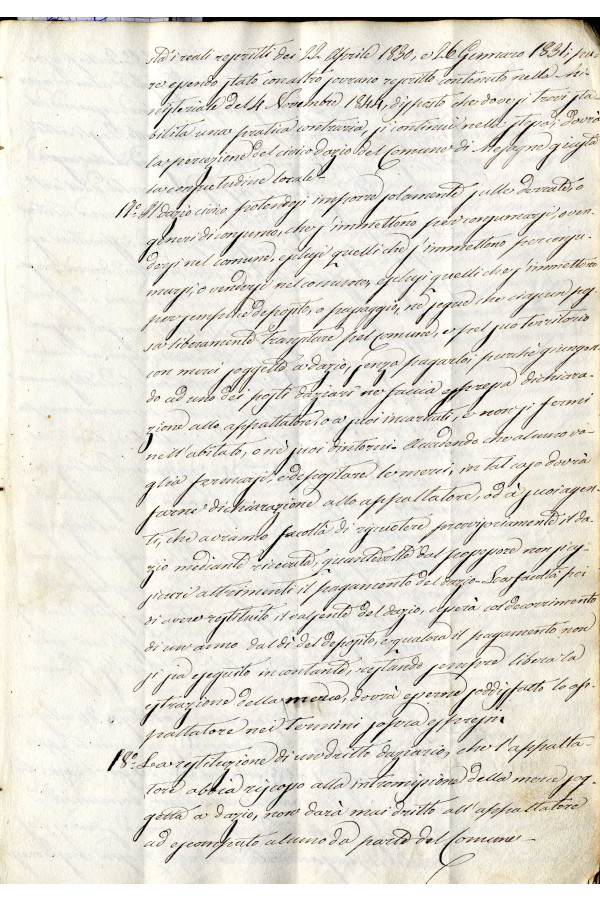 sta' i reali rescritti dei 22 Aprile 1830, e 26 Gennaro 1831; pu-
re essendo stato con altro sovrano rescritto contenuto nella Mi-
nisteriale del 4 Novembre 1844, disposto che dove si trovi sta-
bilita una pratica contraria, si continui nella stessa; dovrà
la percezione del civico dazio del Comune di Mesagne questa
la consuetudine locale =
17.° Il dazio civico potendosi imporre solamente sulle derrate, o
generi di consumo, che s'immettono per consumarsi, o ven-
dersi nel comune, esclusi quelli che s'immettono per consu-
marsi, o vendersi nel comune, esclusi quelli che s'immettono
per semplice deposito, o passaggio, ne segue che ciascun pos-
sa liberamente transitare pel comune, e pel suo territorio
con merci soggette a dazio, senza pagarlo, purché giungen-
do ad uno dei posti daziari ne faccia espressa dichiara-
zione allo appaltatore, o a' suoi incaricati, e non si fermi
nell'abitato, o ne' suoi dintorni. Accadendo che alcuno vo-
glia fermarsi, e depositare le merci, in tal caso dovrà
farne dichiarazione allo appaltatore, od a' suoi agen-
ti, che avranno facoltà di riscuotere provvisoriamente il da-
zio mediante ricevuta, quantevolte dal possessore non si as-
sicuri altrimenti il pagamento del dazio. La facoltà poi
di avere restituito il valsente del dazio, cesserà col decorrimento
di un anno dal dì del deposito, e qualora il pagamento non
si sia eseguito in contante, restando sempre libera la
estrazione della merce, dovrà esserne soddisfatto lo ap-
paltatore nei termini sopra espressi.
18.° La restituzione di un dritto daziario, che l'appalta-
tore abbia riscosso alla intromissione della merce sog-
getta a dazio, non darà mai dritto all'appaltatore
ad escomputo alcuno da parte del Comune